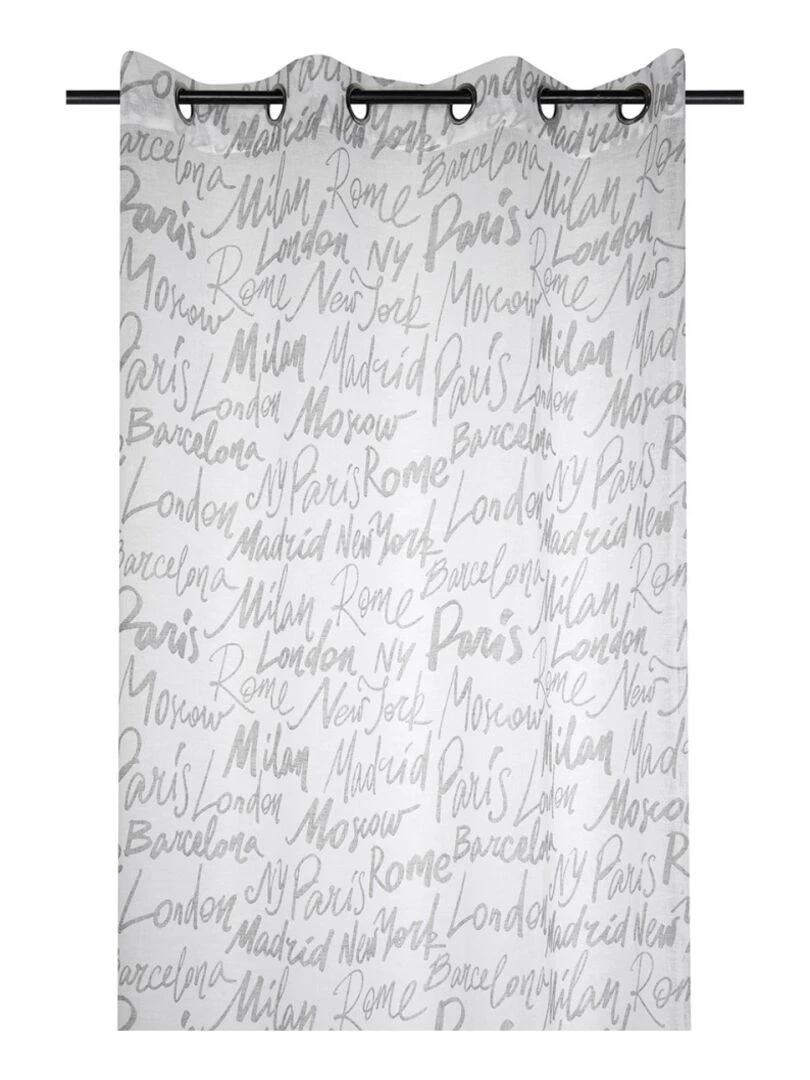 London Paris London
Madrid New York Madrid
Barcelona Barcelona
Paris Milan Rome Paris Milan
London NY London
Moscow Rome New York Moscow Rome
Milan Madrid Milan
Paris London Moscow Paris London
Barcelona Barcelona
London NY Paris Rome London NY Paris
Madrid New York Madrid New
Barcelona Milan Rome Barcelona Milan
Paris London NY Paris London
Moscow Rome New York Moscow Rome New
Milan Madrid Milan Madrid
Paris London Moscow Paris London Moscow
Barcelona Barcelona
London NY Paris Rome London NY Paris
Madrid New York Madrid New
Barcelona Milan Rome Barcelona Milan Rom